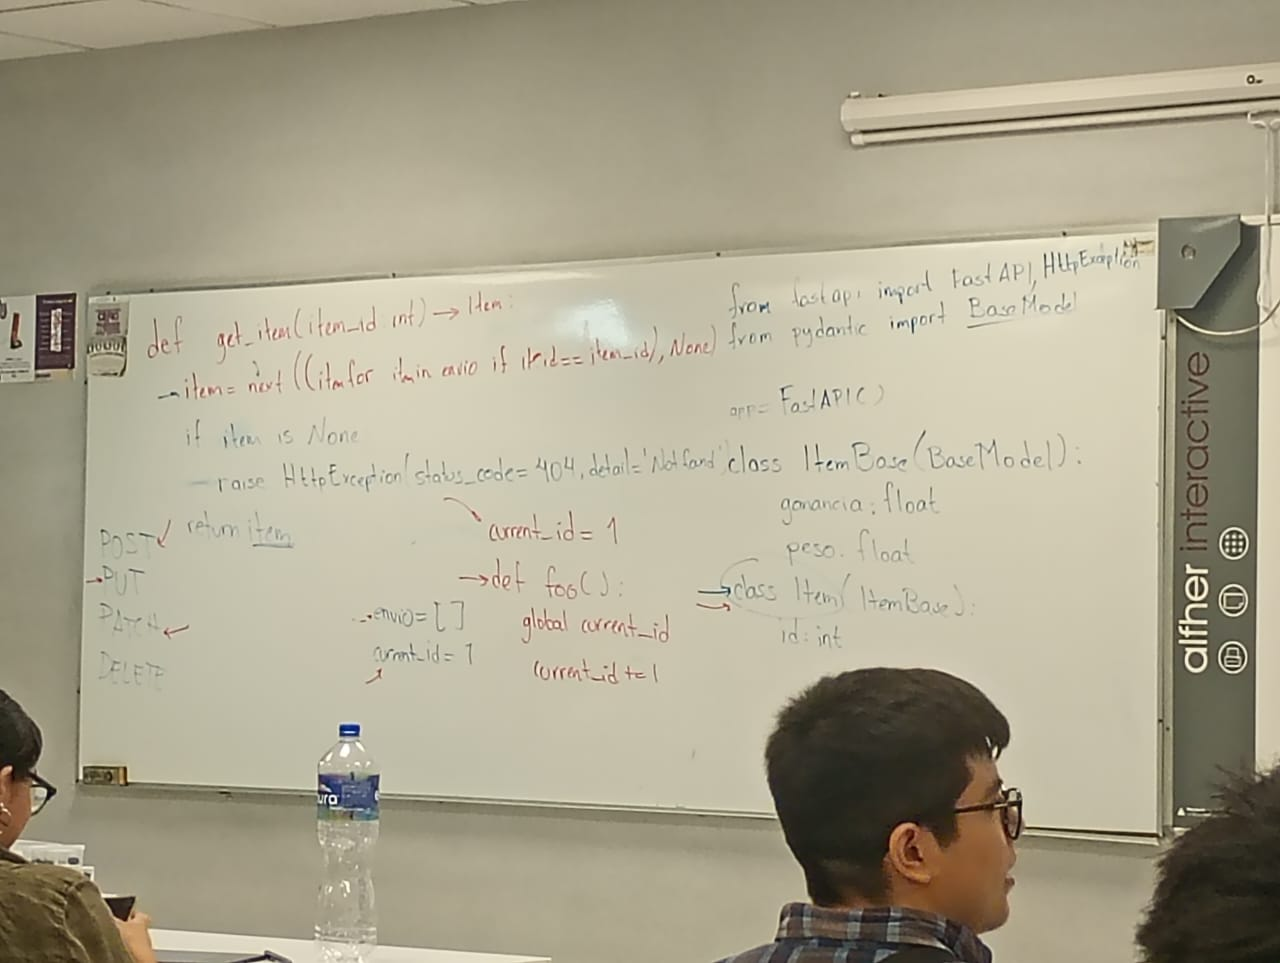 def get_item(item_id int) → Item:
→ item = next ((itm for itm in envio if it id == item_id), None)
if item is None
raise HttpException(status_code=404, detail='Not fand'
return item
POST
→ PUT
PATCH
DELETE
current_id = 1
→ def foo():
global current_id
current_id += 1
→ envio = []
current_id = 1
from fastapi import FastAPI, HttpException
from pydantic import BaseModel
app = FastAPI()
class ItemBase(BaseModel):
ganancia: float
peso: float
→ class Item(ItemBase):
id: int
alfher interactive
ura